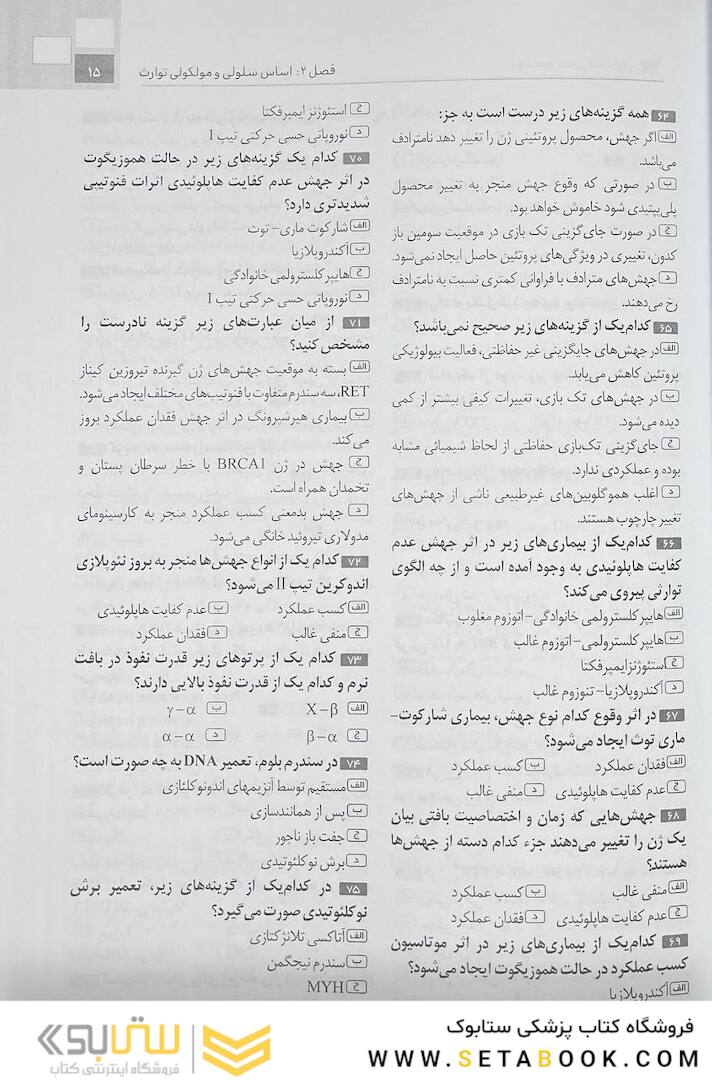 فصل ۲: اساس سلولی و مولکولی توارث
۱۵
۶۴ همه گزینه‌های زیر درست است به جز:
الف اگر جهش، محصول پروتئینی ژن را تغییر دهد نامترادف
می‌باشد.
ب در صورتی که وقوع جهش منجر به تغییر محصول
پلی‌پپتیدی شود خاموش خواهد بود.
ج در صورت جای‌گزینی تک بازی در موقعیت سومین باز
کدون، تغییری در ویژگی‌های پروتئین حاصل ایجاد نمی‌شود.
د جهش‌های مترادف با فراوانی کمتری نسبت به نامترادف
رخ می‌دهند.
۶۵ کدام‌یک از گزینه‌های زیر صحیح نمی‌باشد؟
الف در جهش‌های جایگزینی غیر حفاظتی، فعالیت بیولوژیکی
پروتئین کاهش می‌یابد.
ب در جهش‌های تک بازی، تغییرات کیفی بیشتر از کمی
دیده می‌شود.
ج جای‌گزینی تک‌بازی حفاظتی از لحاظ شیمیائی مشابه
بوده و عملکردی ندارد.
د اغلب هموگلوبین‌های غیرطبیعی ناشی از جهش‌های
تغییر چارچوب هستند.
۶۶ کدام‌یک از بیماری‌های زیر در اثر جهش عدم
کفایت هاپلوئیدی به وجود آمده است و از چه الگوی
توارثی پیروی می‌کند؟
الف هایپر کلسترولمی خانوادگی- اتوزوم مغلوب
ب هایپر کلسترولمی- اتوزوم غالب
ج استئوژنز ایمپرفکتا
د آکندروپلازیا- تنوزوم غالب
۶۷ در اثر وقوع کدام نوع جهش، بیماری شارکوت-
ماری توث ایجاد می‌شود؟
الف فقدان عملکرد ب کسب عملکرد
ج عدم کفایت هاپلوئیدی د منفی غالب
۶۸ جهش‌هایی که زمان و اختصاصیت بافتی بیان
یک ژن را تغییر می‌دهند جزء کدام دسته از جهش‌ها
هستند؟
الف منفی غالب ب کسب عملکرد
ج عدم کفایت هاپلوئیدی د فقدان عملکرد
۶۹ کدام‌یک از بیماری‌های زیر در اثر موتاسیون
کسب عملکرد در حالت هموزیگوت ایجاد می‌شود؟
الف آکندروپلازیا
ج استئوژنز ایمپرفکتا
د نوروپاتی حسی حرکتی تیپ I
۷۰ کدام یک گزینه‌های زیر در حالت هموزیگوت
در اثر جهش عدم کفایت هاپلوئیدی اثرات فنوتیپی
شدیدتری دارد؟
الف شارکوت ماری- توث
ب آکندروپلازیا
ج هایپر کلسترولمی خانوادگی
د نوروپاتی حسی حرکتی تیپ I
۷۱ از میان عبارت‌های زیر گزینه نادرست را
مشخص کنید؟
الف بسته به موقعیت جهش‌های ژن گیرنده تیروزین کیناز
RET، سه سندرم متفاوت با فنوتیپ‌های مختلف ایجاد می‌شود.
ب بیماری هیرشپرونگ در اثر جهش فقدان عملکرد بروز
می‌کند.
ج جهش در ژن BRCA1 با خطر سرطان پستان و
تخمدان همراه است.
د جهش بدمعنی کسب عملکرد منجر به کارسینومای
مدولاری تیروئید خانگی می‌شود.
۷۲ کدام یک از انواع جهش‌ها منجر به بروز نئوپلازی
اندوکرین تیپ II می‌شود؟
الف کسب عملکرد ب عدم کفایت هاپلوئیدی
ج منفی غالب د فقدان عملکرد
۷۳ کدام یک از پرتوهای زیر قدرت نفوذ در بافت
نرم و کدام یک از قدرت نفوذ بالایی دارند؟
الف X-β ب γ-α
ج β-α د α-α
۷۴ در سندرم بلوم، تعمیر DNA به چه صورت است؟
الف مستقیم توسط آنزیمهای اندونوکلئازی
ب پس از همانندسازی
ج جفت باز ناجور
د برش نوکلئوتیدی
۷۵ در کدام‌یک از گزینه‌های زیر، تعمیر برش
نوکلئوتیدی صورت می‌گیرد؟
الف آتاکسی تلانژکتازی
ب سندرم نیجگمن
ج MYH
فروشگاه کتاب پزشکی ستابوک
WWW.SETABOOK.COM
ستابوک
فروشگاه اینترنتی کتاب